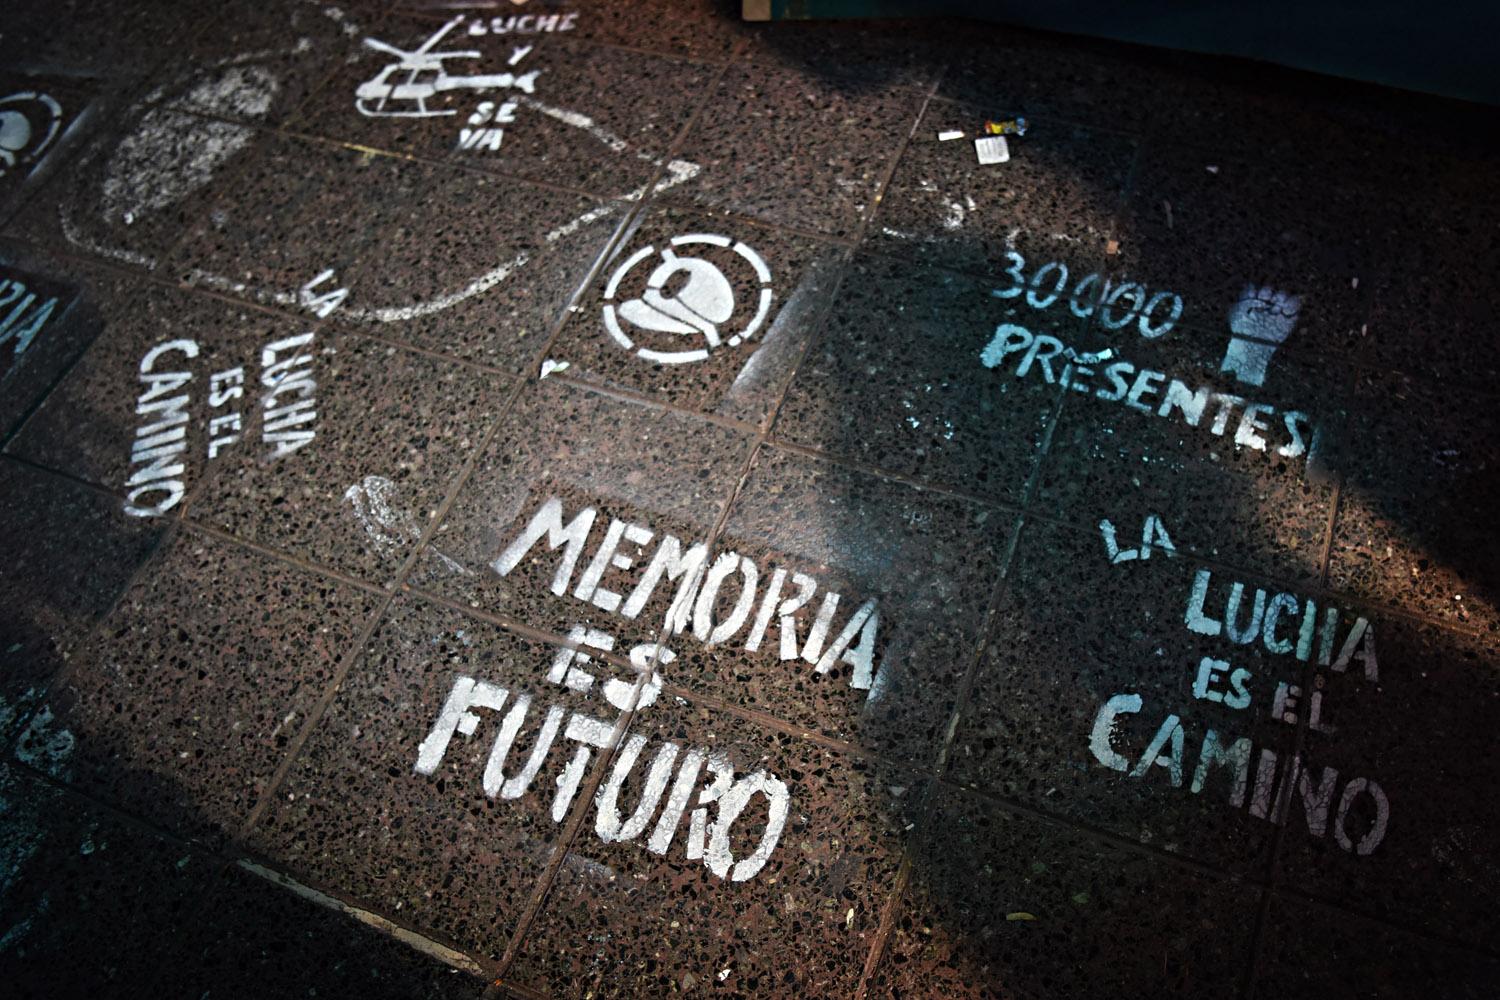 LUCHE
Y
SE
VA
LA
LUCHA
ES EL
CAMINO
30000
PRESENTES
MEMORIA
ES
FUTURO
LA
LUCHA
ES EL
CAMINO